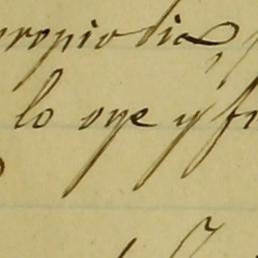 propio dia
lo oye y